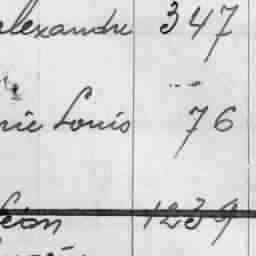 alexandre 347
rie Louis 76
Léon 1239